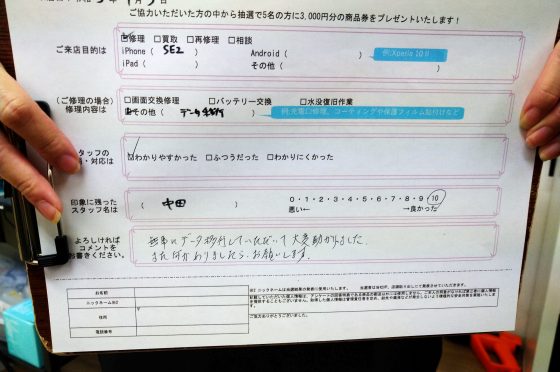 ご協力いただいた方の中から抽選で5名の方に3,000円分の商品券をプレゼントいたします!
ご来店目的は
☑修理 □買取 □再修理 □相談
iPhone ( SE2 ) Android ( ) 例:Xperia 10 II
iPad ( ) その他 (
(ご修理の場合)
修理内容は
□画面交換修理 □バッテリー交換 □水没復旧作業
その他 ( データ移行 ) 例:充電口修理、コーティングや保護フィルム貼付けなど
スタッフの
・対応は
☑わかりやすかった □ふつうだった □わかりにくかった
印象に残った
スタッフ名は
( 中田 )
0・1・2・3・4・5・6・7・8・9・10
悪い← →良かった
よろしければ
コメントを
お書きください。
無事にデータ移行していただいて大変助かりました。
また何かありましたら、お願いします。
お名前
ニックネーム※2
住所 〒
電話番号
ご協力ありがとうございました。